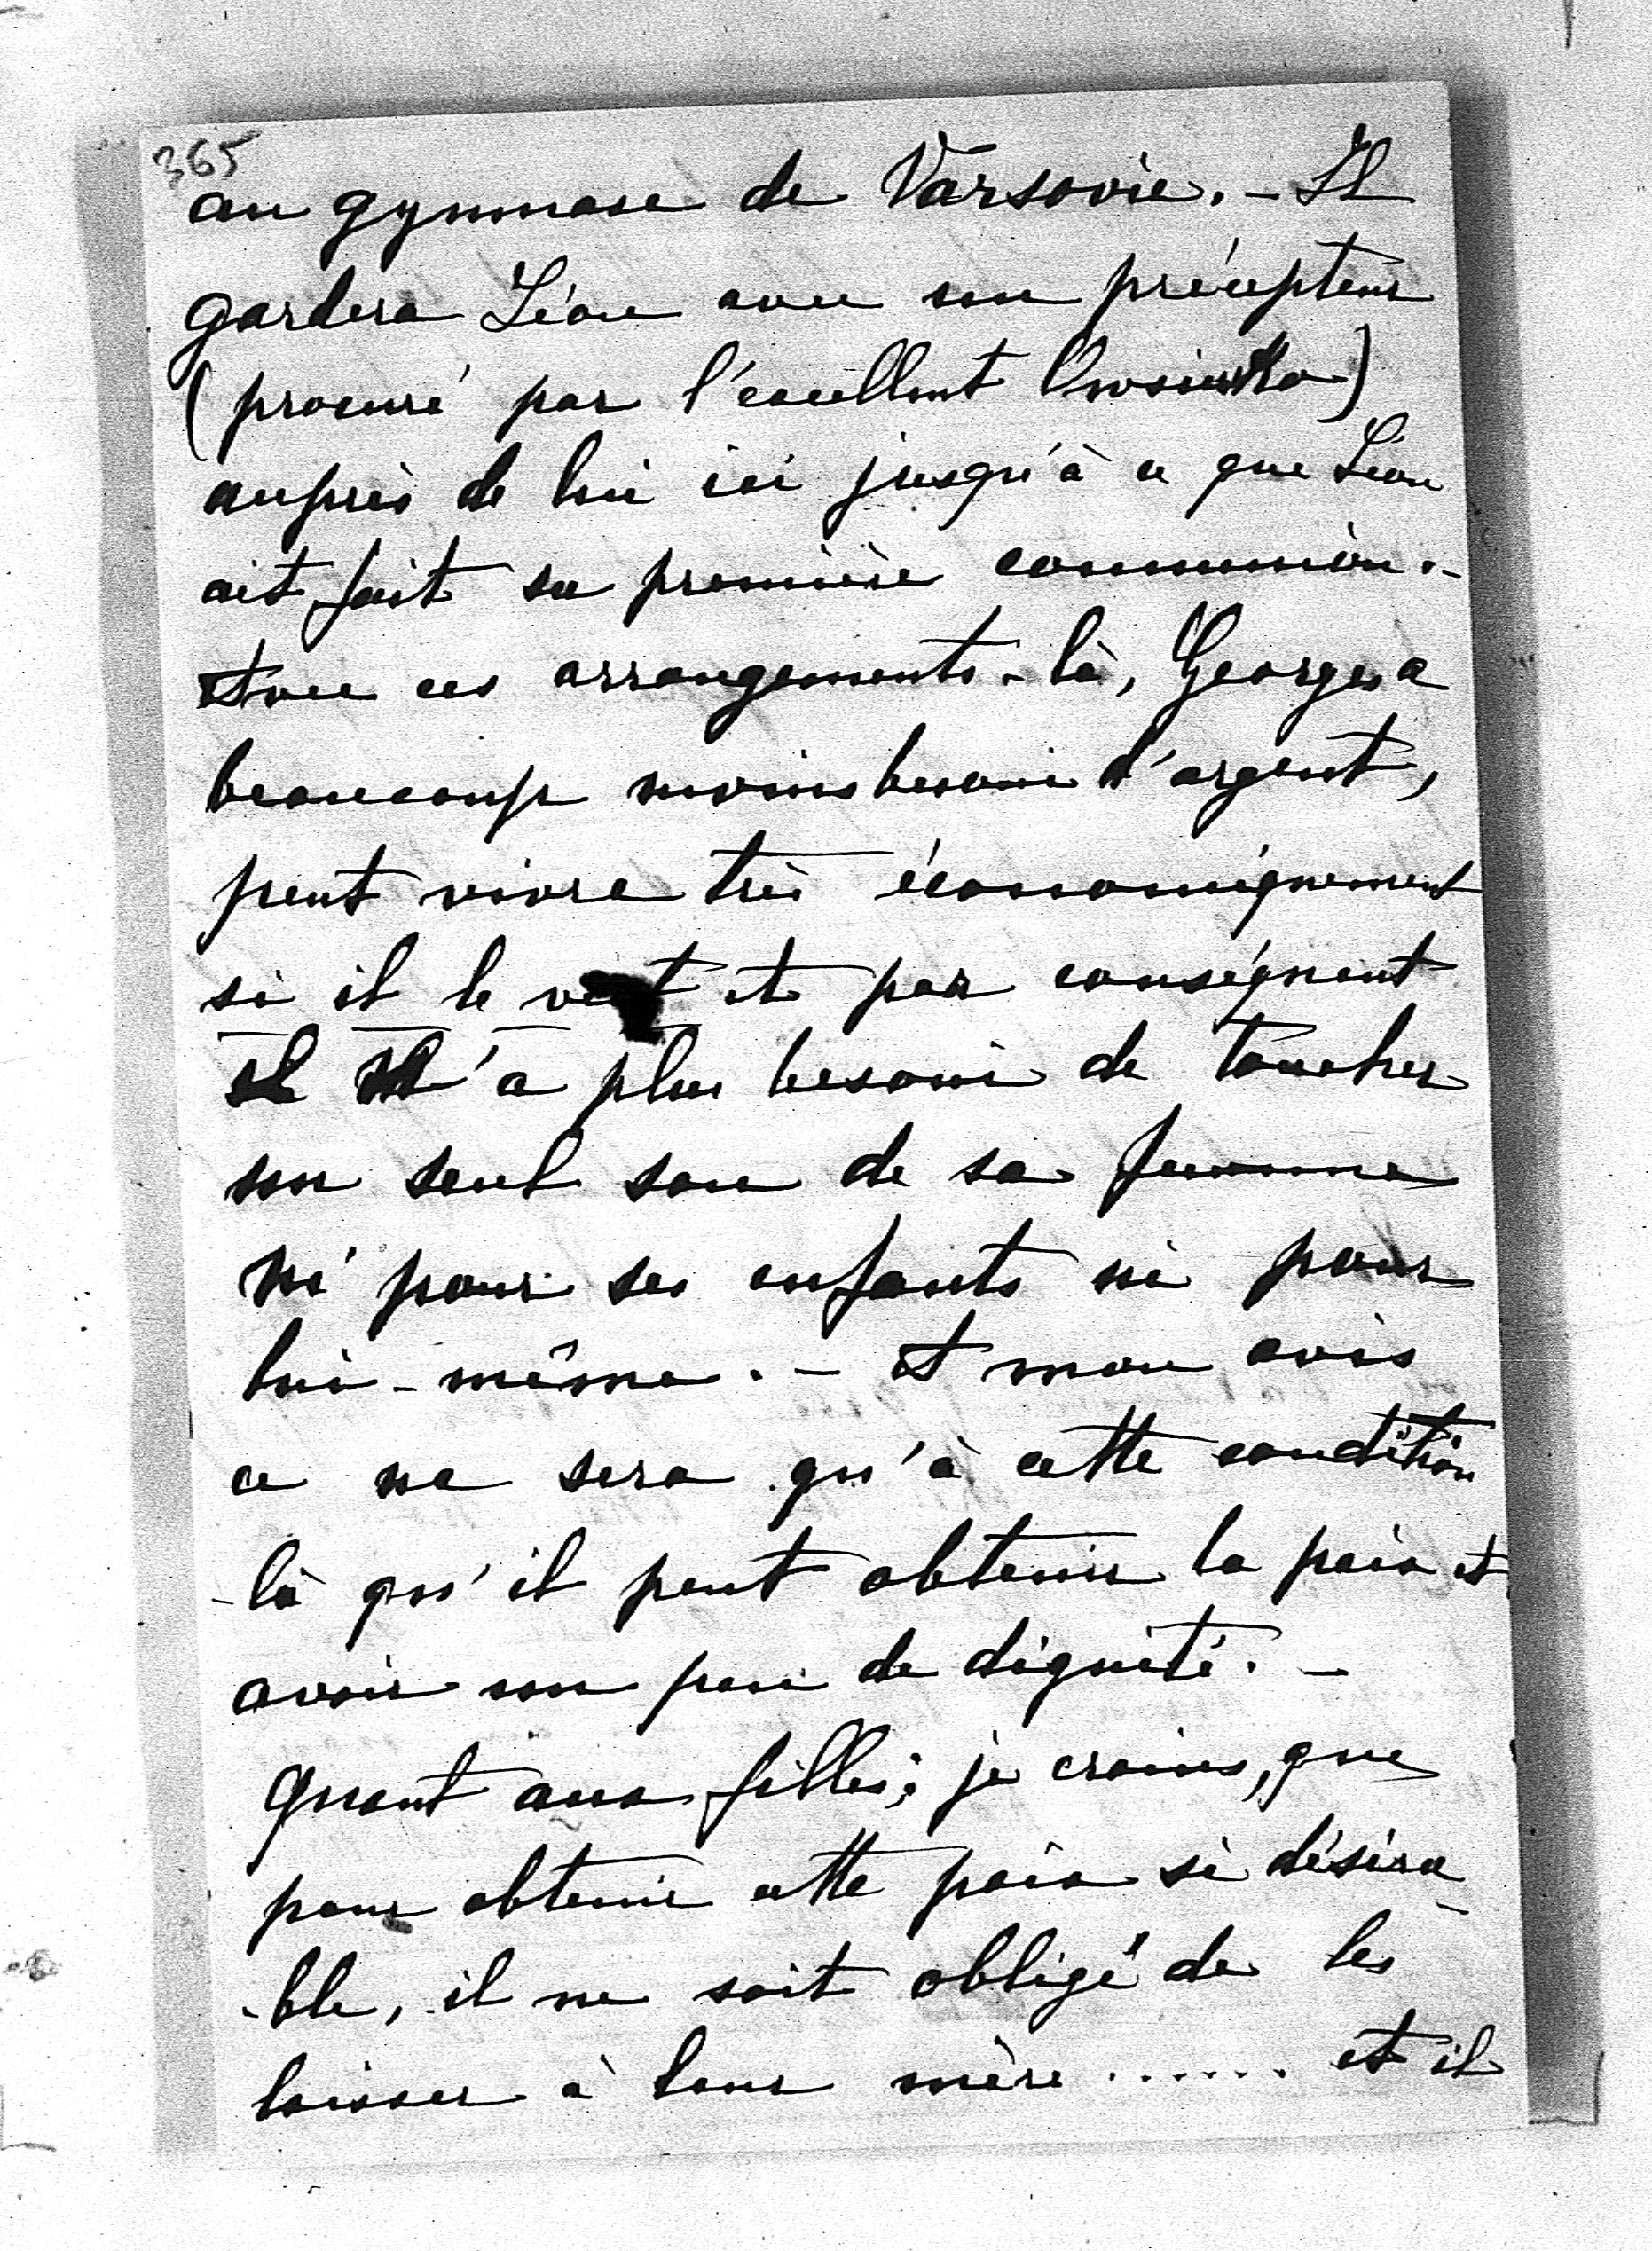 365
au gymnase de Varsovie. – Il
gardera Léon avec un précepteur
(procuré par l'excellent
auprès de lui ici jusqu'à ce que Léon
ait fait sa première communion. –
Avec ces arrangements-là, Georges a
beaucoup moins besoin d'argent,
peut vivre très économiquement
si il le veut et par conséquent
il n'a plus besoin de toucher
un seul sou de sa femme
ni pour ses enfants ni pour
lui-même. – Et mon avis
ce ne sera qu'à cette condition
-là qu'il peut obtenir la paix et
avoir un peu de dignité. –
Quant aux filles; je crains, que
pour obtenir cette paix si désira-
-ble, il ne soit obligé de les
laisser à leur mère ...... et il